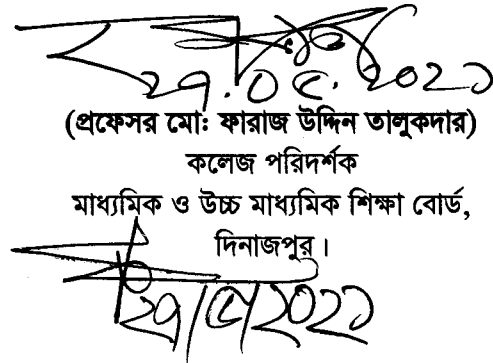 ২৭.০৫.২০২১
(প্রফেসর মো: ফারাজ উদ্দিন তালুকদার)
কলেজ পরিদর্শক
মাধ্যমিক ও উচ্চ মাধ্যমিক শিক্ষা বোর্ড,
দিনাজপুর।
২৭/৫/২০২১